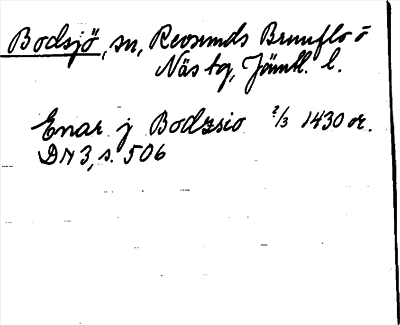 Bodsjö, sn, Revsunds Brunflo o
Näs tg, Jämtl. l.
Enar j Bodzsio 2/3 1430 or.
DN 3, s. 506